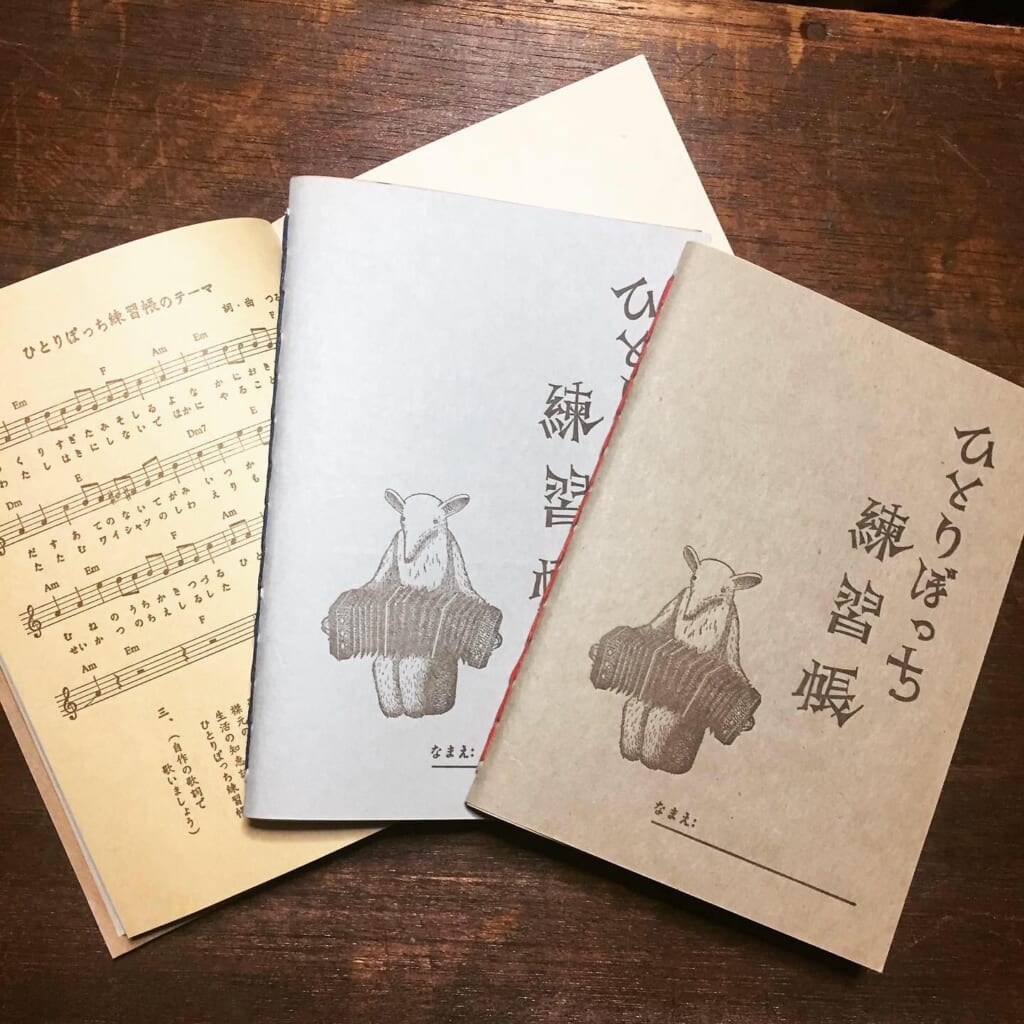 ひとりぼっち練習帳のテーマ
詞・曲 つる
Em F Am Em F
っくりすぎたみそしるよなかにおき
わたしはきにしないでほかにやること
Dm E Dm7 E
だすあてのないてがみいつか
たたむワイシャツのしわえりも
Am Em F Am
むねのうちかきつづるひと
せいかつのちえしるした
Am Em F
襟元の
生活の知恵
ひとりぼっち練習帳
三、(自作の歌詞で
歌いましょう)
ひと
練習帳
なまえ:
ひとりぼっち
練習帳
なまえ: